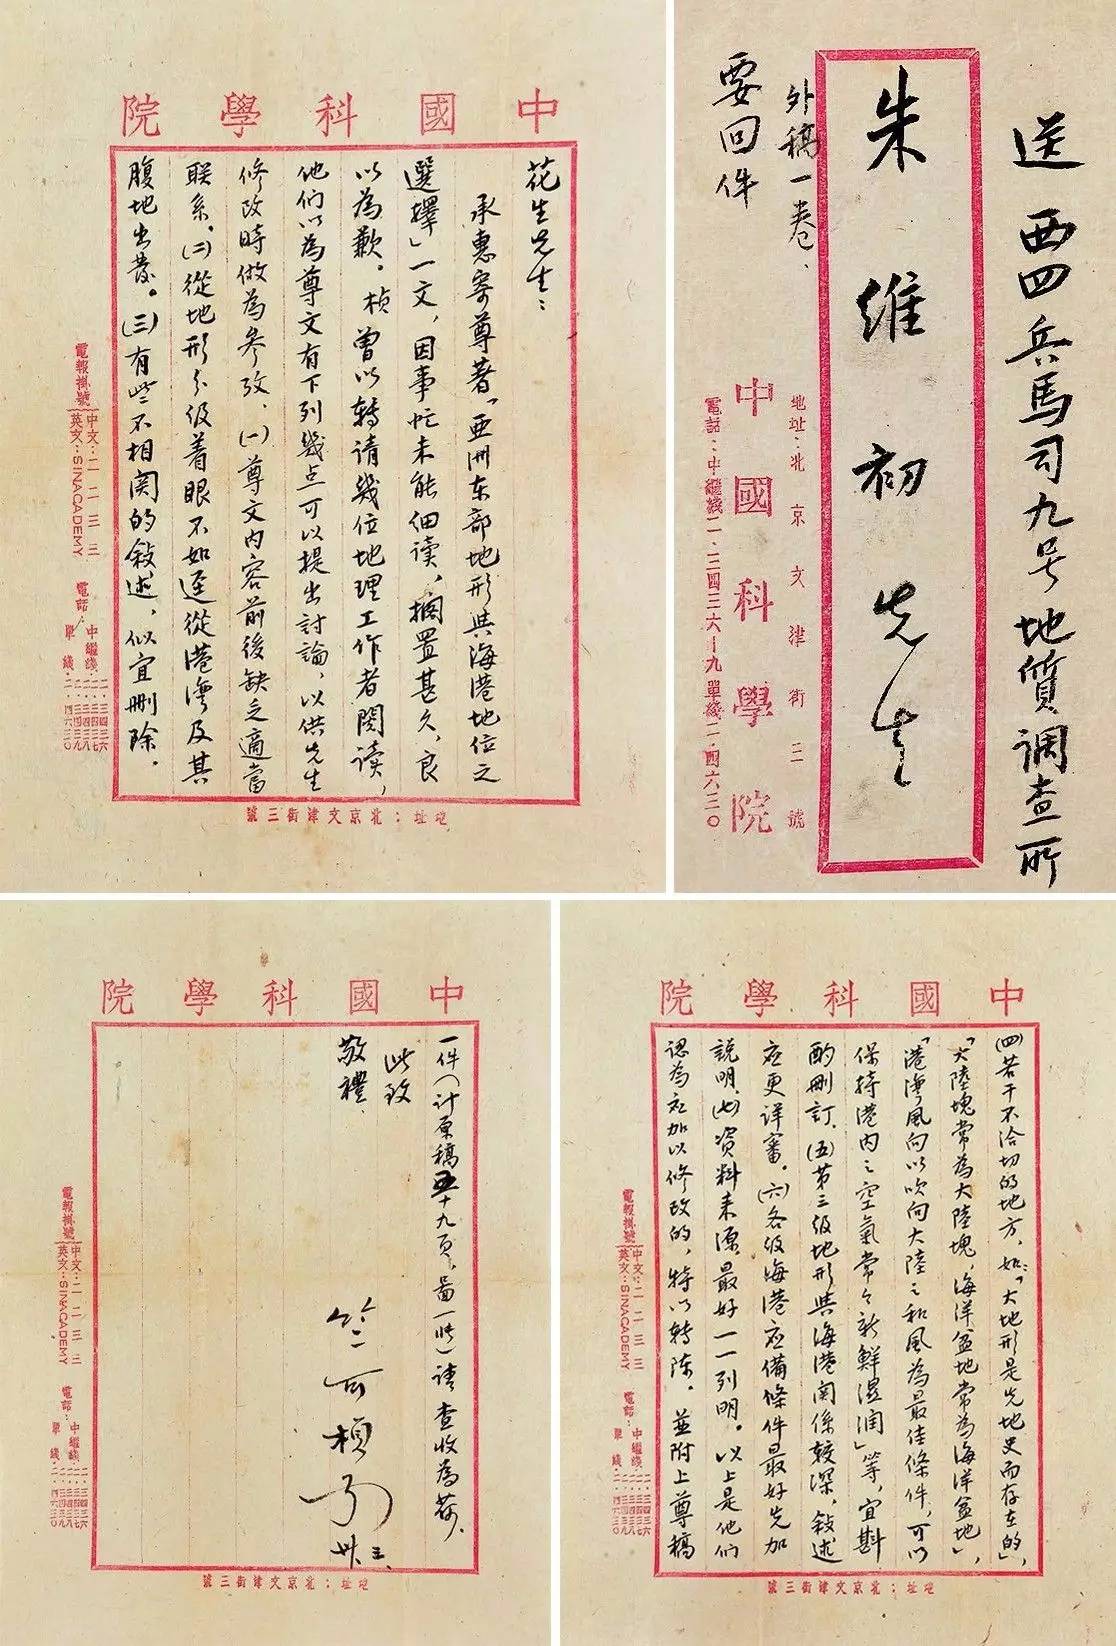 中國科學院
花生先生：
承惠寄尊著「亚洲东部地形與海港地位之
選擇」一文，因事忙未能细读，擱置甚久，良
以為歉。楨曾以转请幾位地理工作者閱读，
他们以為尊文有下列幾点可以提出討論，以供先生
修改時做為参攷，(一)尊文内容前後缺乏適當
联系。(二)從地形分级着眼不如逕從港灣及其
腹地出發。(三)有些不相関的敍述，似宜刪除。
電報掛號 中文：二二三三
英文：SINACADEMY
電話：中繼綫
單綫：二·四六三〇
地址：北京文津街三號
送西四兵馬司九号地質調查所
朱維初先生
外稿一卷、
要回件
地址：北京文津街三號
中國科學院
電話：中繼綫二·二四三六—九單綫二·四六三〇
中國科學院
(四)若干不洽切的地方，如：「大地形是先地史而存在的」，
「大陸塊常為大陸塊，海洋盆地常為海洋盆地」，
「港灣風向以吹向大陸之和風為最佳條件，可以
保持港内之空氣常々新鮮湿润」等，宜斟
酌刪訂．(五)第三级地形與海港関係較深，敍述
应更详審。(六)各级海港应備條件最好先加
説明．(七)资料来源最好一一列明。以上是他们
認為应加以修改的，特以转陈．並附上尊稿
電報掛號 中文：二二三三
英文：SINACADEMY
電話：中繼綫
單綫：二·四六三〇
地址：北京文津街三號
中國科學院
一件(計原稿五十九页，畐一張)请查收為荷．
此致
敬禮．
竺可楨
卅
電報掛號 中文：二二三三
英文：SINACADEMY
電話：中繼綫
單綫：二·四六三〇
地址：北京文津街三號